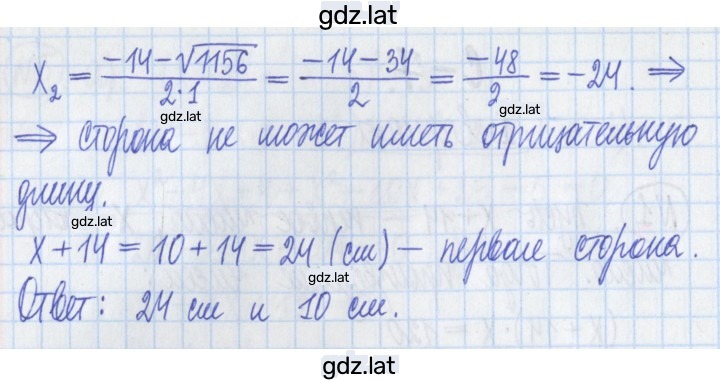 gdz.lat
x₂ = (-14-√1156)/(2·1) = (-14-34)/2 = -48/2 = -24. ⇒
gdz.lat
gdz.lat
⇒ сторона не может иметь отрицательную
длину.
gdz.lat
x + 14 = 10 + 14 = 24 (см) — первая сторона.
gdz.lat
Ответ: 24 см и 10 см.
gdz.lat